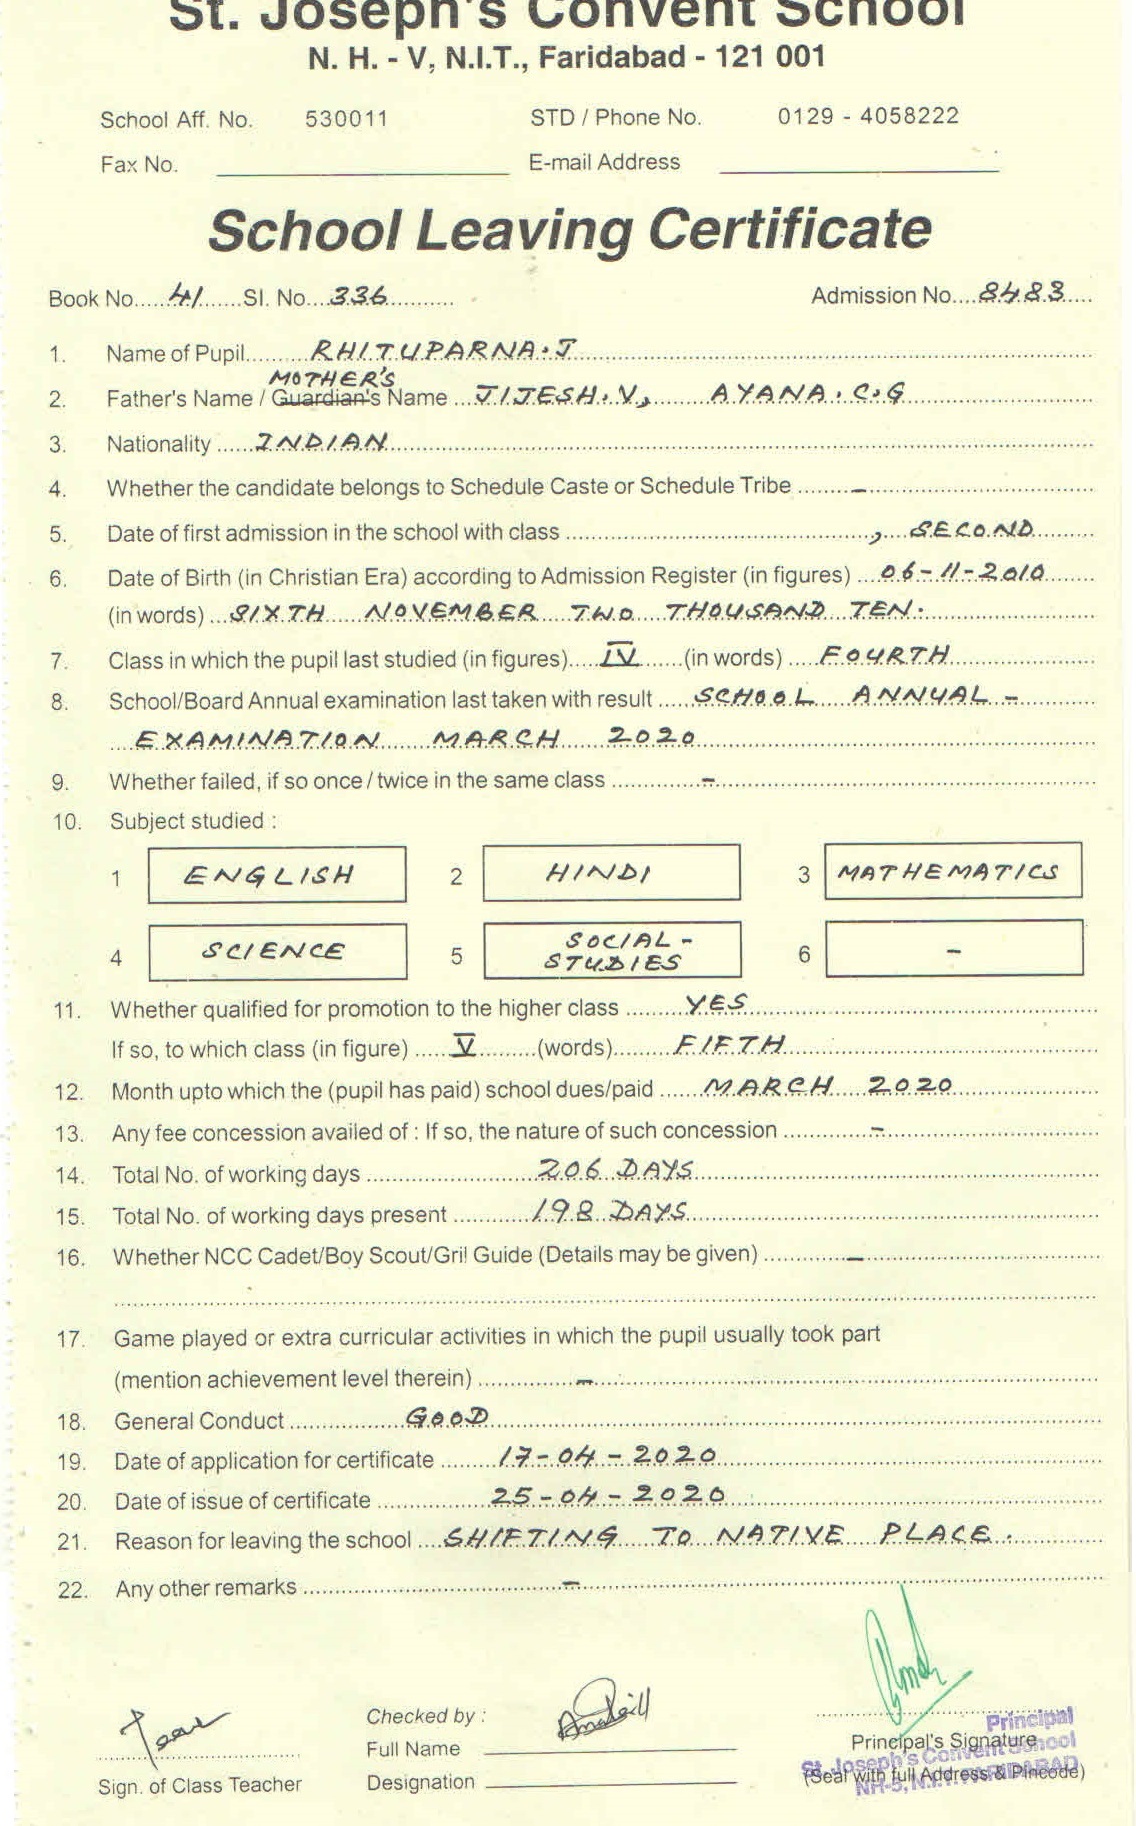 St. Joseph's Convent School
N. H. - V, N.I.T., Faridabad - 121 001
School Aff. No. 530011 STD / Phone No. 0129 - 4058222
Fax No. E-mail Address
School Leaving Certificate
Book No. 41 Sl. No. 336 Admission No. 8483
1. Name of Pupil RHITUPARNA . J
MOTHER'S
2. Father's Name / Guardian's Name JIJESH . V, AYANA . C . G
3. Nationality INDIAN
4. Whether the candidate belongs to Schedule Caste or Schedule Tribe -
5. Date of first admission in the school with class , SECOND
6. Date of Birth (in Christian Era) according to Admission Register (in figures) 06-11-2010
(in words) SIXTH NOVEMBER TWO THOUSAND TEN.
7. Class in which the pupil last studied (in figures) IV (in words) FOURTH
8. School/Board Annual examination last taken with result SCHOOL ANNUAL -
EXAMINATION MARCH 2020
9. Whether failed, if so once / twice in the same class -
10. Subject studied :
1 ENGLISH 2 HINDI 3 MATHEMATICS
4 SCIENCE 5 SOCIAL - 6 -
STUDIES
11. Whether qualified for promotion to the higher class YES
If so, to which class (in figure) V (words) FIFTH
12. Month upto which the (pupil has paid) school dues/paid MARCH 2020
13. Any fee concession availed of : If so, the nature of such concession -
14. Total No. of working days 206 DAYS
15. Total No. of working days present 198 DAYS
16. Whether NCC Cadet/Boy Scout/Gril Guide (Details may be given) -
17. Game played or extra curricular activities in which the pupil usually took part
(mention achievement level therein) -
18. General Conduct GOOD
19. Date of application for certificate 17-04-2020
20. Date of issue of certificate 25-04-2020
21. Reason for leaving the school SHIFTING TO NATIVE PLACE.
22. Any other remarks -
Checked by :
Full Name
Designation
Sign. of Class Teacher
Principal
Principal's Signature
St. Joseph's Convent School
(Seal with full Address & Pincode)
NH-5, N.I.T. FARIDABAD